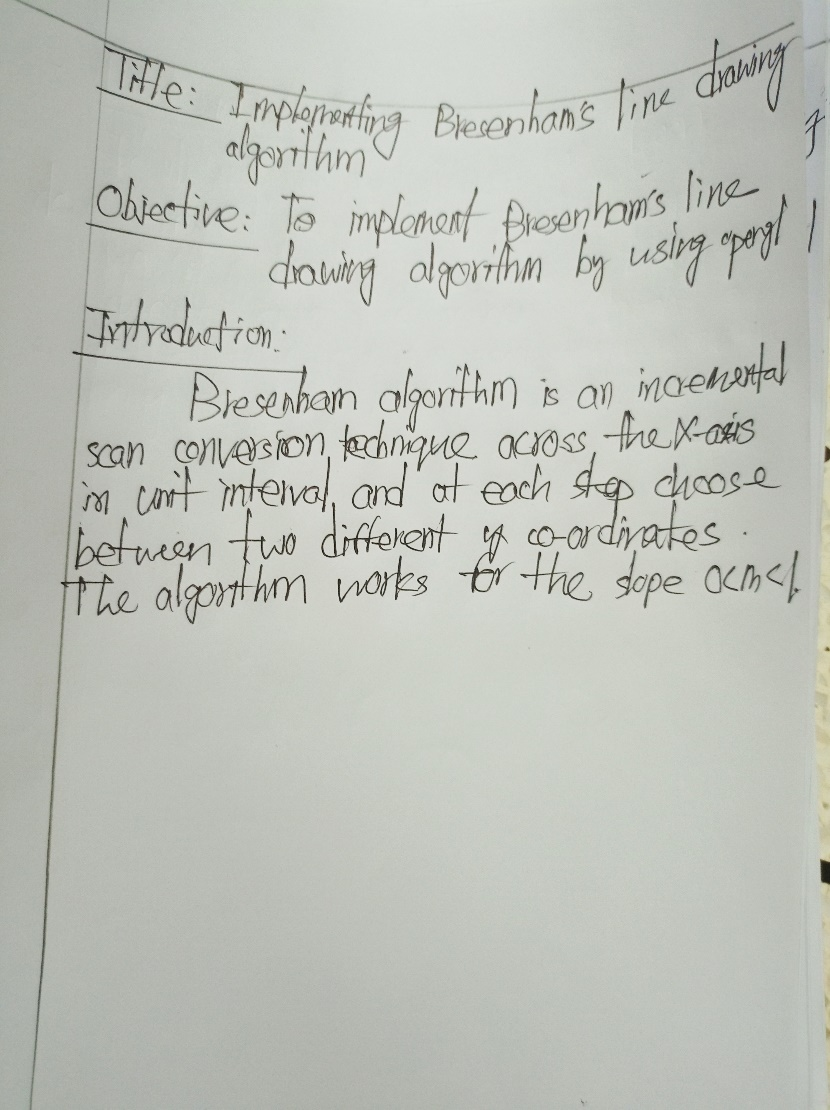 Title: Implementing Bresenham's line drawing
algorithm
Objective: To implement Bresenham's line
drawing algorithm by using opengl
Introduction:
Bresenham algorithm is an incremental
scan conversion technique across the X-axis
in unit interval, and at each step choose
between two different y co-ordinates.
The algorithm works for the slope 0<m<1.